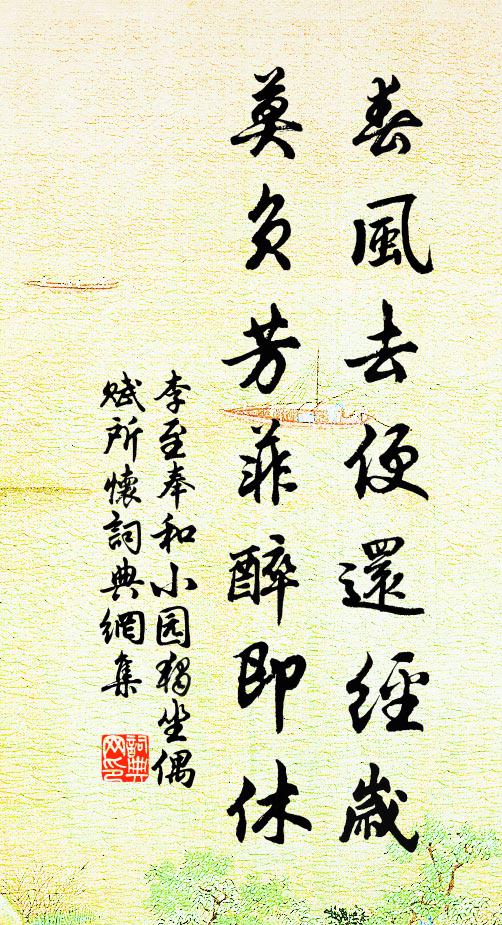 春風去便還經歲
莫負芳菲醉即休
李至奉和小园獨坐偶
賦所懷詞典網集
詞典
网印